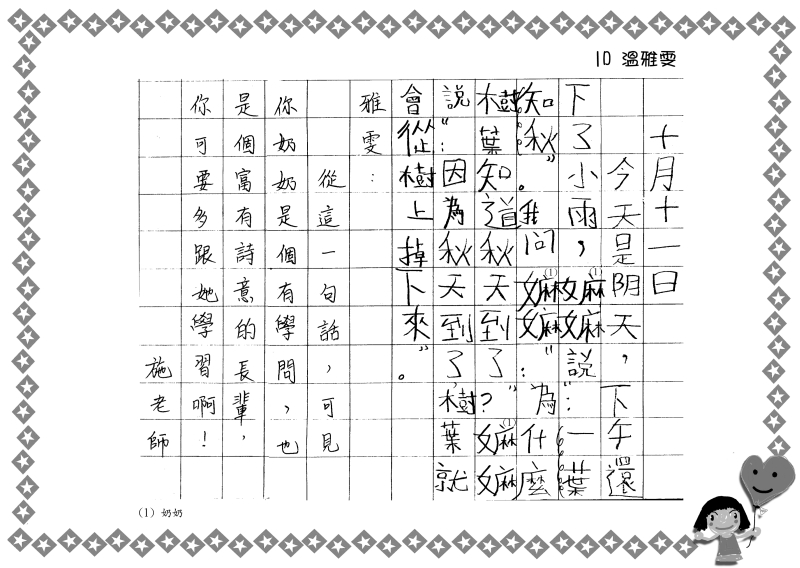 10 溫雅雯
十月十一日
今天是阴天，下午還
下了小雨，嫲(1)嫲說：“一葉
知秋”。我問嫲(1)嫲：“為什麼
樹葉知道秋天到了？”嫲(1)嫲
說：“因為秋天到了，樹葉就
會從樹上掉下來”。
雅雯：
從這一句話，可見
你奶奶是個有學問，也
是個富有詩意的長輩，
你可要多跟她學習啊！
施老師
(1) 奶奶